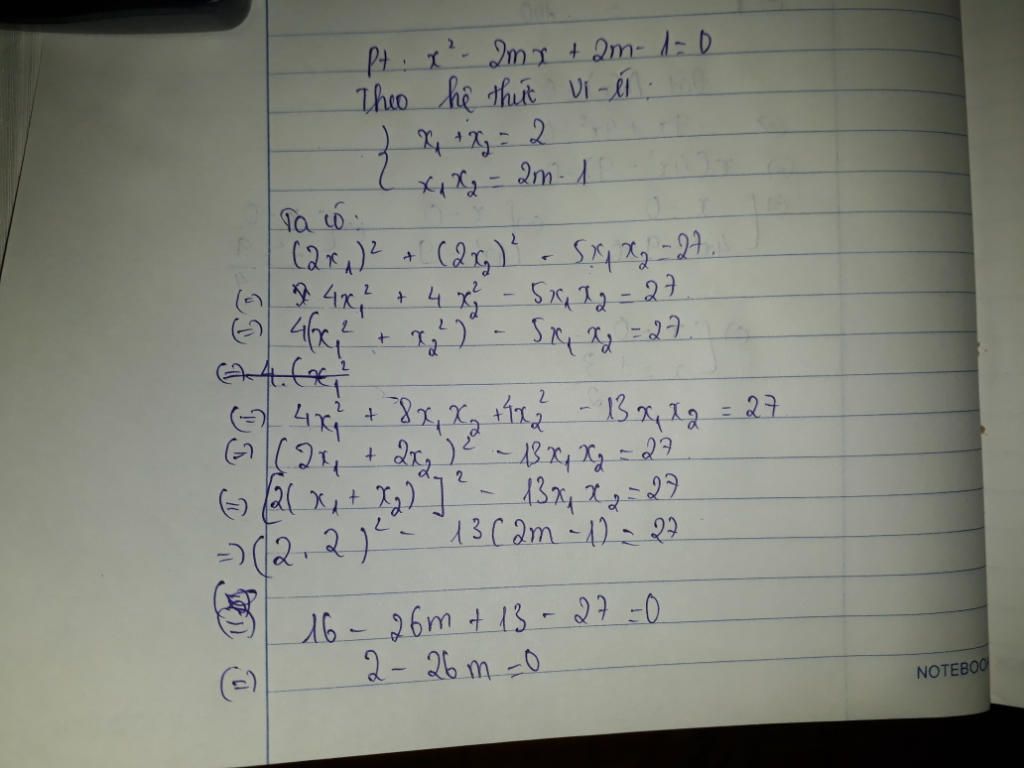 Pt: x² - 2mx + 2m - 1 = 0
Theo hệ thức Vi-ét:
{ x₁ + x₂ = 2
x₁x₂ = 2m - 1
Ta có:
(2x₁)² + (2x₂)² - 5x₁x₂ = 27.
(=) 4x₁² + 4x₂² - 5x₁x₂ = 27
(=) 4(x₁² + x₂²) - 5x₁x₂ = 27.
(=) 4.(x₁²
(=) 4x₁² + 8x₁x₂ + 4x₂² - 13x₁x₂ = 27
(=) (2x₁ + 2x₂)² - 13x₁x₂ = 27
(=) [2(x₁ + x₂)]² - 13x₁x₂ = 27
=) (2.2)² - 13(2m - 1) = 27
(=) 16 - 26m + 13 - 27 = 0
(=) 2 - 26m = 0
NOTEBOO